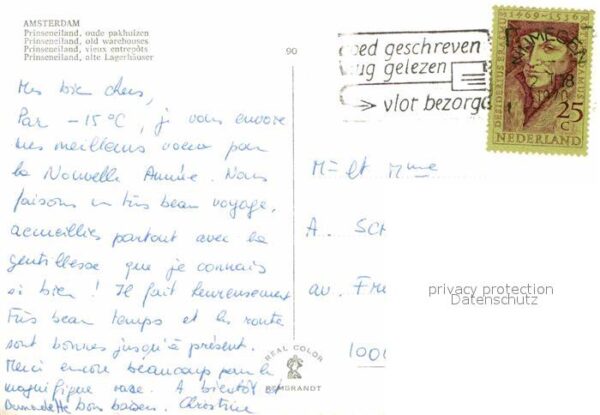 AMSTERDAM
Prinseneiland, oude pakhuizen
Prinseneiland, old warehouses
Prinseneiland, vieux entrepôts
Prinseneiland, alte Lagerhäuser
90
oed geschreven
ug gelezen
vlot bezorgd
NIJMEGEN
DESIDERIUS ERASMUS
1469-1536
25 c
NEDERLAND
Mes bien chers,
Par -15°C, je vous envoie
mes meilleurs voeux pour
la Nouvelle Année. Nous
faisons un très beau voyage,
accueillies partout avec la
gentillesse que je connais
si bien ! Il fait heureusement
très beau temps et les routes
sont bonnes jusqu'à présent.
Merci encore beaucoup pour le
magnifique vase. A bientôt et
bons baisers. Christine
Mr et Mme
A. SCH
av. Fr
1000
REAL COLOR
REMBRANDT
privacy protection
Datenschutz